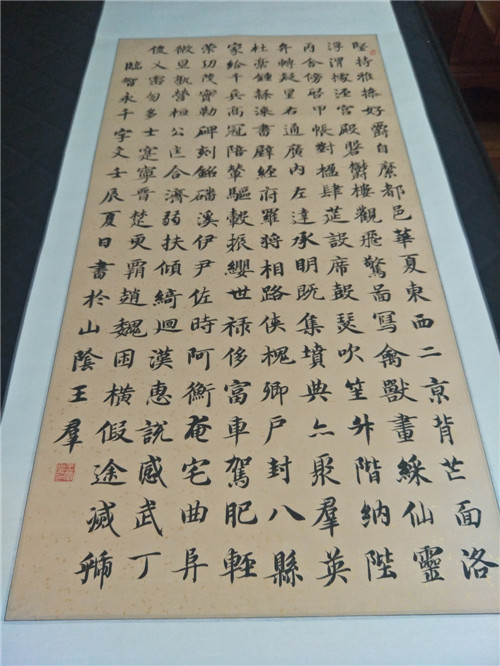 堅持雅操好爵自縻都邑華夏東西二京背芒面洛
浮渭據涇宮殿磐鬱樓觀飛驚啚寫禽獸畫綵仙靈
丙舍傍啓甲帳對楹肆筵設席鼓瑟吹笙升階納陛
弁轉疑星右通廣內左達承明既集墳典亦聚羣英
杜稾鍾隸漆書壁經府羅將相路俠槐卿戶封八縣
家給千兵高冠陪輦驅轂振纓世祿侈富車駕肥輕
策功茂實勒碑刻銘磻溪伊尹佐時阿衡奄宅曲阜
微旦孰營桓公匡合濟弱扶傾綺迴漢惠說感武丁
俊乂密勿多士寔寧晉楚更霸趙魏困橫假途滅虢
臨智永千字文壬辰夏日書於山陰王羣